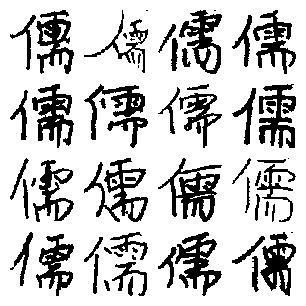 儒儒儒儒
儒儒儒儒
儒儒儒儒
儒儒儒儒